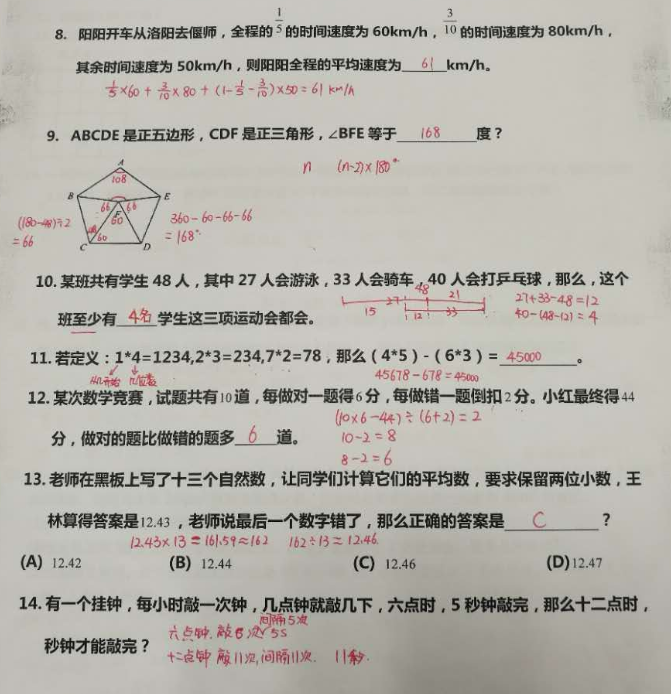 8. 阳阳开车从洛阳去偃师，全程的 1/5 的时间速度为 60km/h，3/10 的时间速度为 80km/h，
其余时间速度为 50km/h，则阳阳全程的平均速度为 61 km/h。
1/5×60 + 3/10×80 + (1-1/5-3/10)×50 = 61 km/h
9. ABCDE 是正五边形，CDF 是正三角形，∠BFE 等于 168 度？
n (n-2)×180°
A
108
B E
66 F 66
60
(180-48)÷2
= 66
48 60
C D
360-60-66-66
= 168°
10. 某班共有学生 48 人，其中 27 人会游泳，33 人会骑车，40 人会打乒乓球，那么，这个
48
27 21
15 12 33
27+33-48=12
40-(48-12)=4
班至少有 4名 学生这三项运动会都会。
11. 若定义：1*4=1234,2*3=234,7*2=78，那么（4*5）-（6*3）= 45000 。
从几开始 几位数
45678-678=45000
12. 某次数学竞赛，试题共有10道，每做对一题得6分，每做错一题倒扣2分。小红最终得44
(10×6-44)÷(6+2)=2
分，做对的题比做错的题多 6 道。
10-2=8
8-2=6
13. 老师在黑板上写了十三个自然数，让同学们计算它们的平均数，要求保留两位小数，王
林算得答案是12.43，老师说最后一个数字错了，那么正确的答案是 C ？
12.43×13=161.59≈162 162÷13≈12.46
(A) 12.42 (B) 12.44 (C) 12.46 (D)12.47
14. 有一个挂钟，每小时敲一次钟，几点钟就敲几下，六点时，5 秒钟敲完，那么十二点时，
间隔5次
秒钟才能敲完？
六点钟，敲6次 5s
十二点钟 敲11次,间隔11次. 11秒.